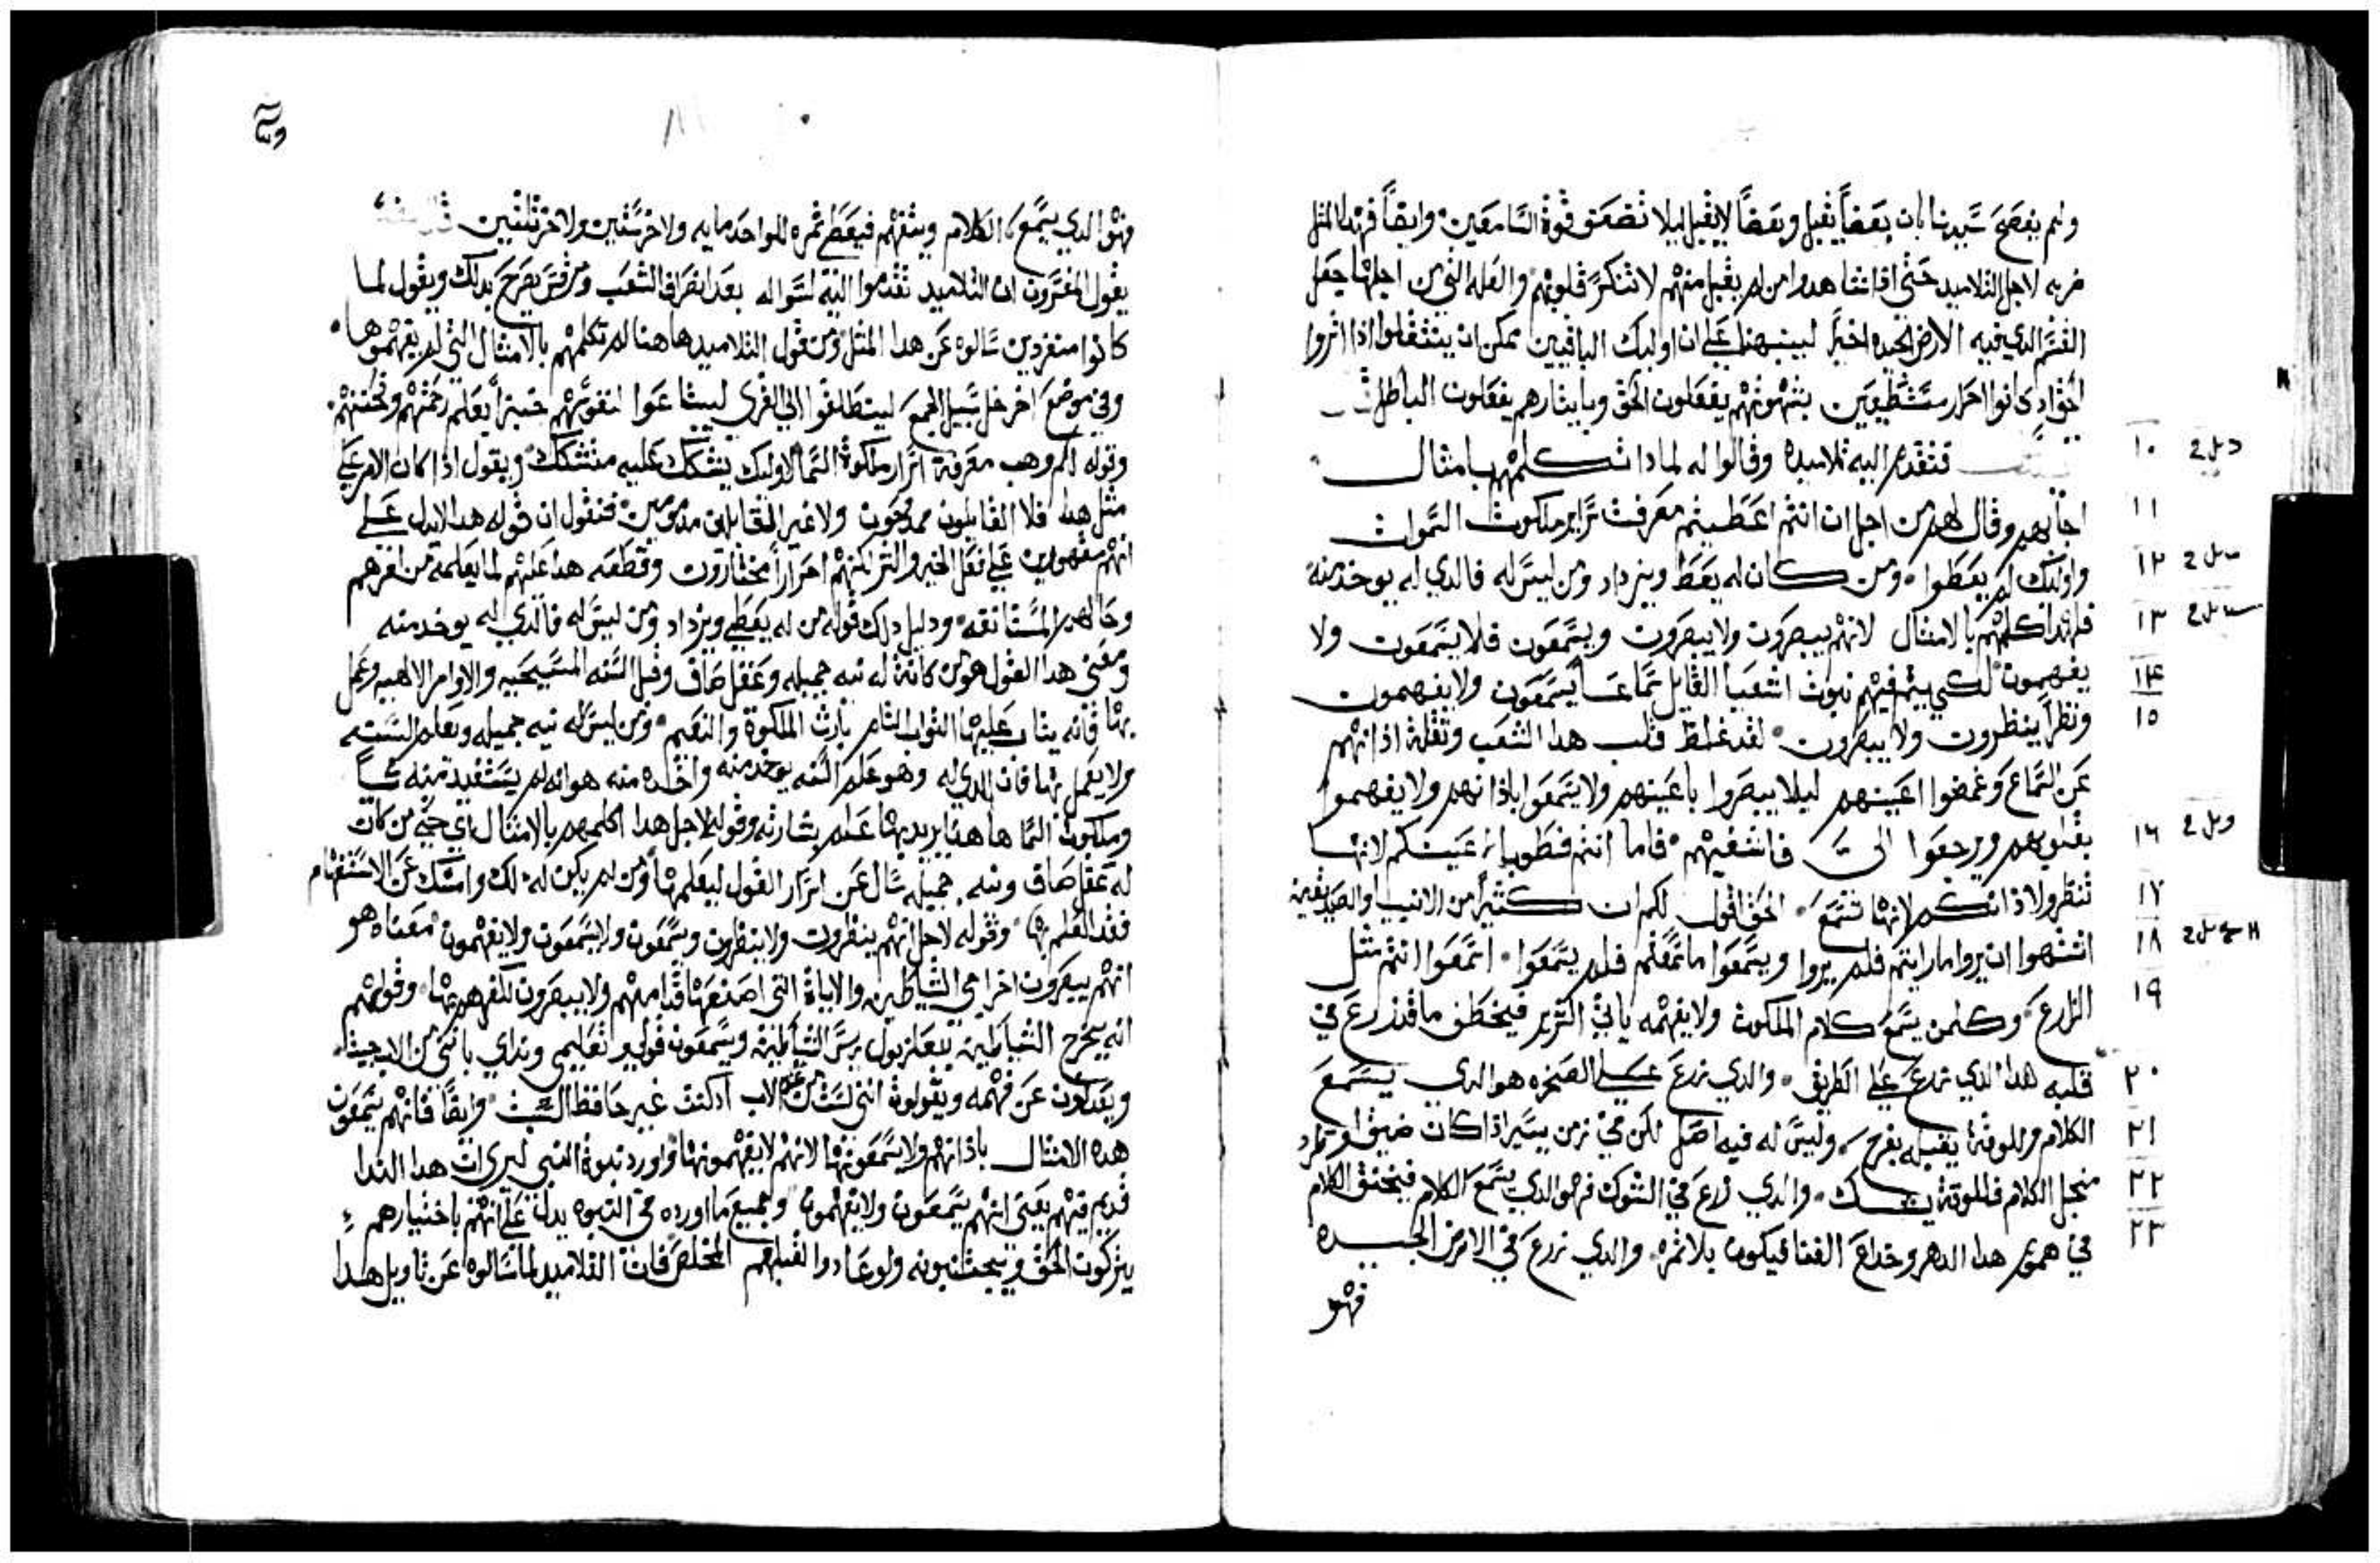 ولم يفصح سيدنا بان بعضاً يقبل وبعضاً لا يقبل ليلا تضعف قوة السامعين وايضاً فهدا المثل
ضربه لاجل التلاميد حتي ادا شاهدوا من لم يقبل منهم لا تنكسر قلوبهم والعله التي من اجلها جعل
القسم الدي فيه الارض الجيده اخيراً لينبهنا علي ان اوليك الباقيين يمكن ان ينتقلوا اذا اثروا
كانوا احرار مستطيعين بشهوتهم يفعلون الحق وبايثارهم يفعلون الباطل
١٠ فتقدم اليه تلاميده وقالوا له لمادا تكلمهم بامثال
١١ اجابهم وقال لهم من اجل ان انتم اعطيتم معرفت سراير ملكوت السموات
١٢ واوليك لم يعطوا ومن كان له يعط ويزداد ومن ليس له فالدي له يوخد منه
١٣ فلهدا اكلمهم بالامثال لانهم يبصرون ولا يبصرون ويسمعون فلا يسمعون ولا
١٤ يفهمون لكي يتم فيهم نبوت اشعيا القايل سماعاً يسمعون ولا يفهمون
١٥ ونظراً ينظرون ولا يبصرون لقد غلظ قلب هدا الشعب وثقلة اذانهم
عن السماع وغمضوا اعينهم ليلا يبصروا باعينهم ولا يسمعوا باذانهم ولا يفهموا
١٦ بقلوبهم ويرجعوا الى فاشفيهم فاما انتم فطوبا لعينكم لانها
١٧ تنظر ولاذانكم لانها تسمع الحق اقول لكم ان كثيراً من الانبيا والصديقين
١٨ اشتهوا ان يروا ما رايتم فلم يروا ويسمعوا ما سمعتم فلم يسمعوا اسمعوا انتم مثل
١٩ الزارع وكلمن يسمع كلام الملكوت ولا يفهمه ياتي الشرير فيخطف ما قد زرع في
٢٠ قلبه هدا الدي زرع علي الطريق والدي زرع علي الصخره هو الدي يسمع
٢١ الكلام وللوقت يقبله بفرح وليس له فيه اصل لكن في زمن يسير اذا كان ضيق او طراد
٢٢ من اجل الكلام فللوقت يشك والدي زرع في الشوك فهو الدي يسمع الكلام فيخنق الكلام
٢٣ في هموم هدا الدهر وخداع الغنا فيكون بلا ثمره والدي زرع في الارض الجيده
فهو
فهو الدي يسمع الكلام ويتفهم فيعطي ثمره للواحد مايه ولاخر ستين ولاخر ثلثين
يقول المفسرون ان التلاميد تقدموا اليه لسواله بعد انصراف الشعب ومرقس يصرح بدلك ويقول لما
كانوا منفردين سالوه عن هدا المثل ومن قول التلاميد هاهنا لم تكلمهم بالامثال التي لم يفهموها
وفي موضع اخر خل سبيل الجمع لينطلقوا الي القري ليبتاعوا لنفوسهم خبزاً يعلم رحمتهم ومحبتهم
وقوله لكم وهب معرفة اسرار ملكوة السما لا لاوليك يتشكك عليه متشكك ويقول اذا كان الامر علي
مثل هدا فلا القابلون ممدوحون ولا غير القابلين مذمومين فنقول ان قوله هدا لا يدل علي
انهم مقهورين علي فعل الخير والشر لكنهم احراراً مختارون وقطعه هدا عليهم لما يعلمه من امرهم
وحالهم المستانفه ودليل دلك قوله من له يعطي ويزداد ومن ليس له فالدي له يوخد منه
ومعنى هدا القول هو من كانة له نيه جميله وعقل صاف وقبل السنه المسيحيه والاوامر الالهيه وعمل
بها فانه يثاب عليها الثواب التام بارث الملكوة والنعيم ومن ليس له نيه جميله وتعلم السنه
ولا يعمل بها فان الدي له وهو علم السنه يوخد منه واخده منه هو انه لم يستفيد منه شياً
وملكوت السما هاهنا يريد بها علم بشارته وقوله لاجل هدا اكلمهم بالامثال اي حتي من كان
له عقل صاف ونيه جميله سال عن اسرار القول ليعلمها ومن لم يكن له دلك وامسك عن الاستفهام
فقد العلم بها وقوله لاجل انهم ينظرون ولا ينظرون ويسمعون ولا يسمعون ولا يفهمون معناه هو
انهم يبصرون اخراجي الشياطين والاياة التي اصنعها قدامهم ولا يبصرون لتفهمها وقولهم
انه يخرج الشياطين ببعلزبول ريس الشياطين ويسمعون قولي وتعليمي ونداي بانني من الاب جيت
ويعدلون عن فهمه ويقولوة انني لست من الاب ادكنت غير حافظ السبت وايضاً فانهم يسمعون
هده الامثال باذانهم ولا يسمعونها لانهم لا يفهمونها واورد نبوة النبي ليري ان هدا الندا
قديم فيهم يعني انهم يسمعون ولا يفهمون وجميع ما اورده في النبوه يدل علي انهم باختيارهم
يتركون الحق ويجتنبونه ولو عادوا لقبلهم المخلص فان التلاميد لما سالوه عن تاويل هدا